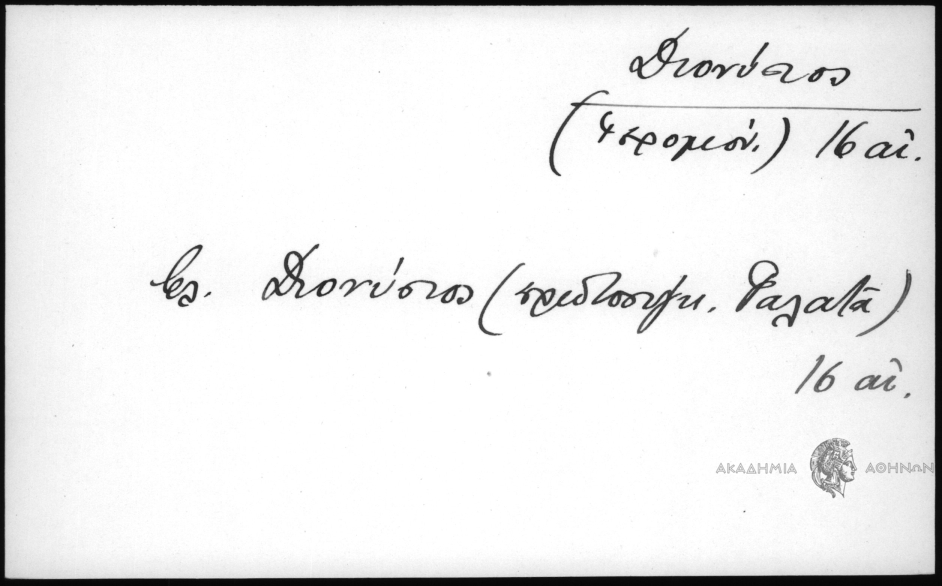 Διονύσιος
(Ἱερομόν.) 16 αἰ.
βλ. Διονύσιος (πρωτοσύγκ. Γαλατᾶ)
16 αἰ.
ΑΚΑΔΗΜΙΑ ΑΘΗΝΩΝ